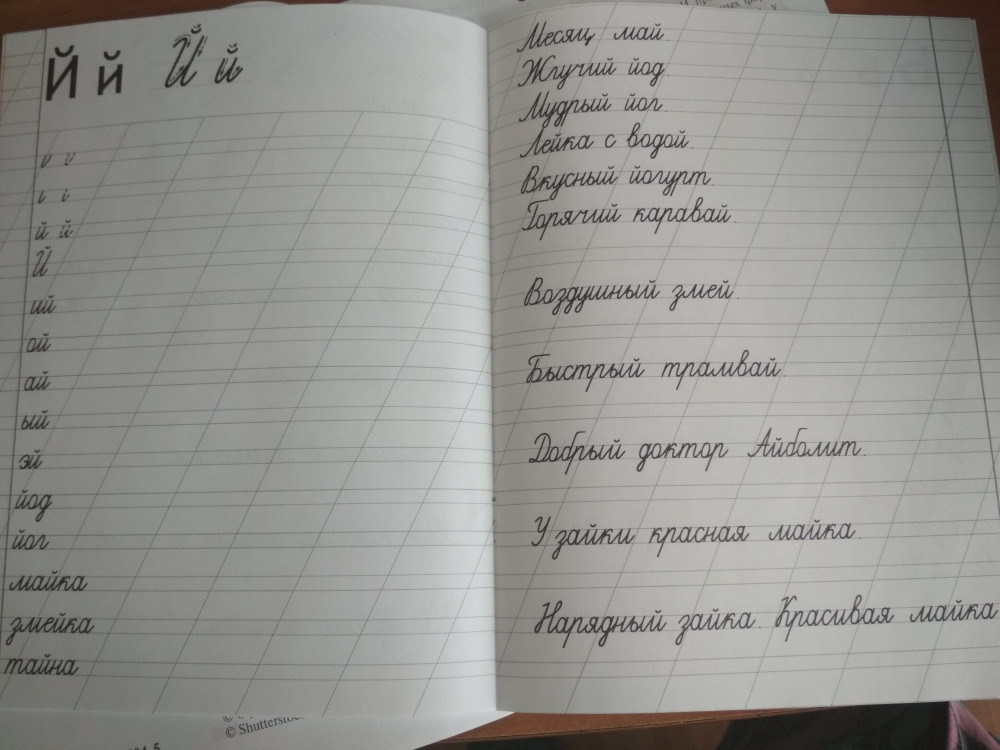 Й й Й й
и и
й й
Й
ий
ой
ай
ый
эй
йод
йог
майка
змейка
тайна
Месяц май.
Жгучий йод.
Мудрый йог.
Лейка с водой.
Вкусный йогурт.
Горячий каравай.
Воздушный змей.
Быстрый трамвай.
Добрый доктор Айболит.
У зайки красная майка.
Нарядный зайка. Красивая майка
© Shutterstoc